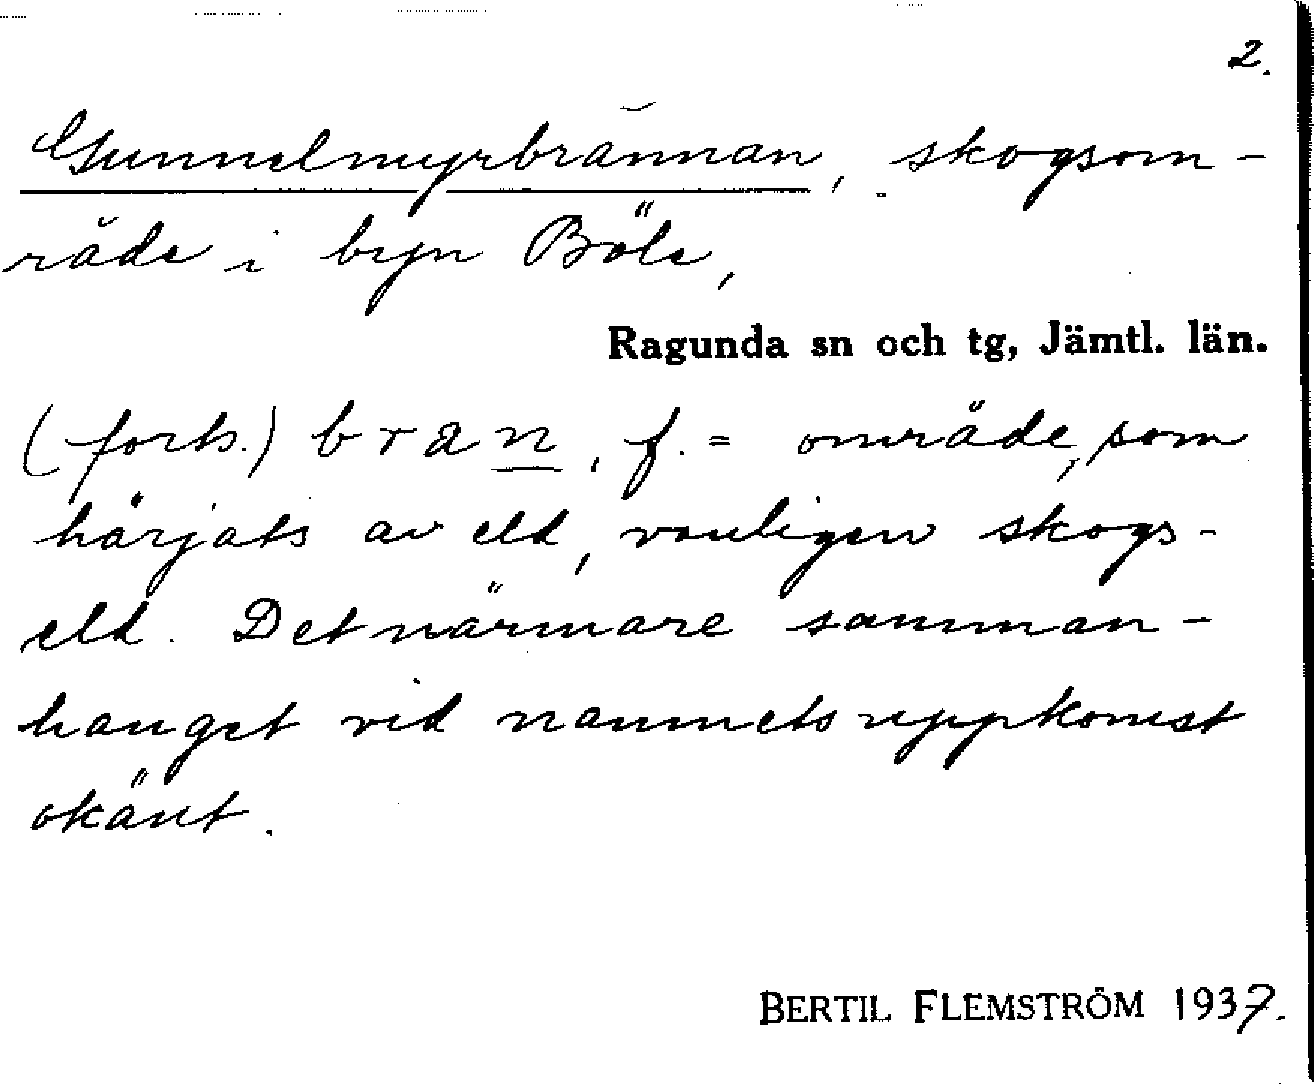 2.
Gunnelmyrbrännan, skogsom-
råde i byn Böle,
Ragunda sn och tg, Jämtl. län.
(forts.) bran, f. = område, som
härjats av eld, vanligen skogs-
eld. Det närmare samman-
hanget vid namnets uppkomst
okänt.
BERTIL FLEMSTRÖM 1937.